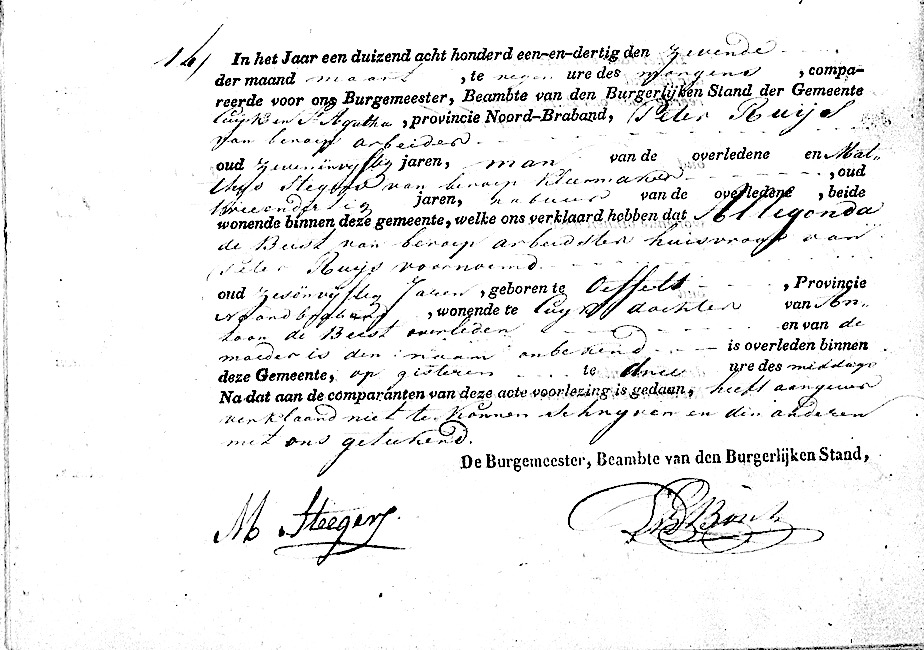 16/ In het Jaar een duizend acht honderd een-en-dertig den Zevende
der maand maart , te negen ure des morgens , compa-
reerde voor ons Burgemeester, Beambte van den Burgerlijken Stand der Gemeente
Cuijk en St Agatha , provincie Noord-Braband, Peter Ruijs
van beroep arbeider
oud Zevenënvijftig jaren, man van de overledene en Mat-
thijs Stegers van beroep kleermaker , oud
jaren, nabuur van de overledene , beide
wonende binnen deze gemeente, welke ons verklaard hebben dat Allegonda
de Best van beroep arbeidster huisvrouw van
Peter Ruijs voornoemd
oud Zesënvijftig Jaren , geboren te Oeffelt , Provincie
Noordbraband , wonende te Cuijk dochter van An-
toon de Best overleden en van de
moeder is den naam onbekend is overleden binnen
deze Gemeente, op gisteren te drie ure des middags
Na dat aan de comparanten van deze acte voorlezing is gedaan, heeft aangever
verklaard niet te konnen schrijven en den anderen
met ons getekend.
De Burgemeester, Beambte van den Burgerlijken Stand,
M Steegers.